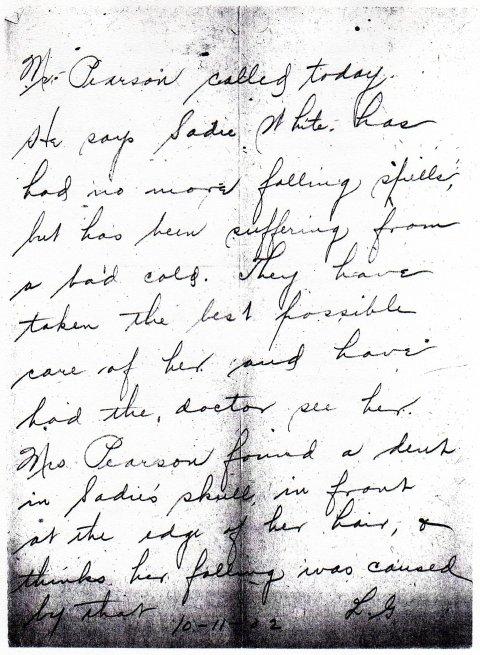 Mr. Pearson called today.
He says Sadie White has
had no more falling spells,
but has been suffering from
a bad cold. They have
taken the best possible
care of her and have
had the doctor see her.
Mrs Pearson found a dent
in Sadie's skull, in front
at the edge of her hair, &
thinks her falling was caused
by that
10-11- 2 L.G